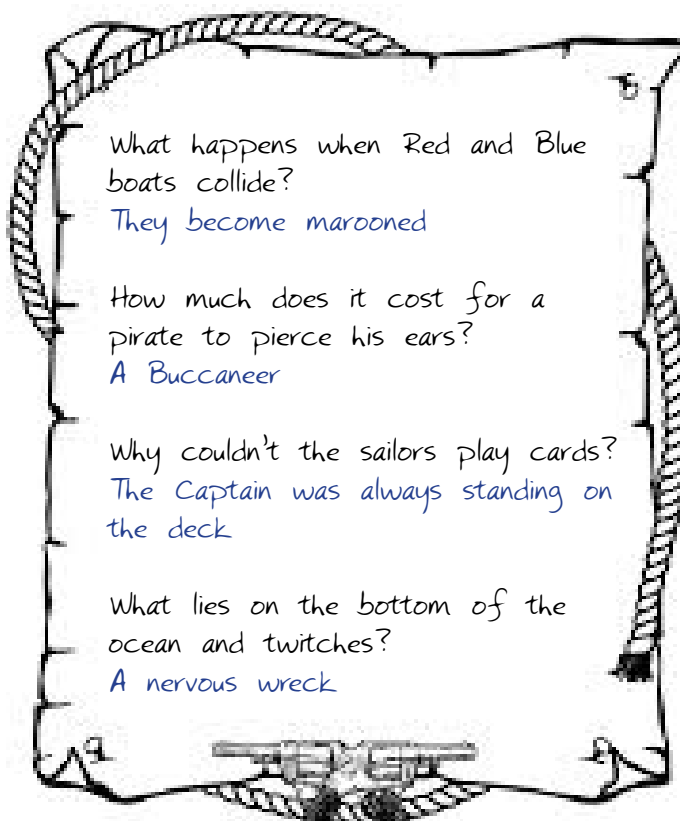 What happens when Red and Blue
boats collide?
They become marooned
How much does it cost for a
pirate to pierce his ears?
A Buccaneer
Why couldn't the sailors play cards?
The Captain was always standing on
the deck
What lies on the bottom of the
ocean and twitches?
A nervous wreck